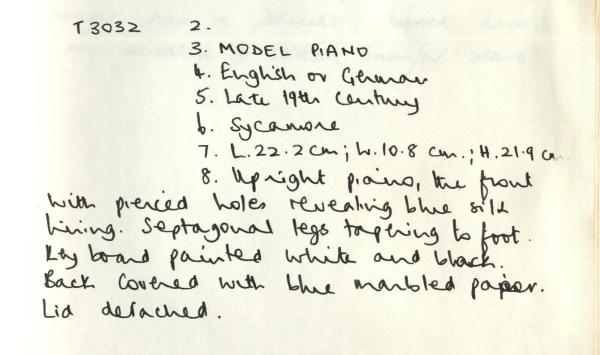 T3032 2.
3. MODEL PIANO
4. English or German
5. Late 19th Century
6. Sycamore
7. L.22.2cm; W.10.8 cm.; H.21.9 cm.
8. Upright piano, the front
with pierced holes revealing blue silk
lining. Septagonal legs tapering to foot.
Key board painted white and black.
Back covered with blue marbled paper.
Lid detached.